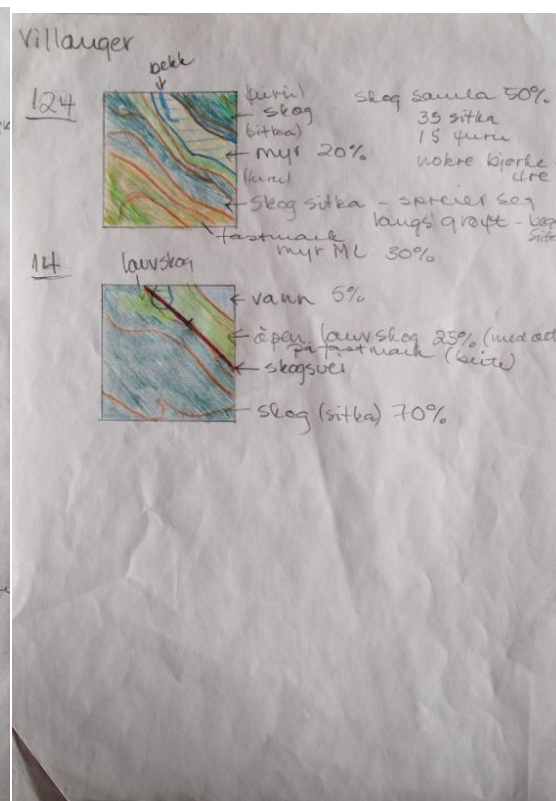 Villanger
bekk
124
(furu)
skog
(sitka)
myr 20%
(furu)
skog sitka - spreier seg
langs grøft -
fastmark
myr ML 30%
skog samla 50%
35 sitka
15 furu
nokre bjørke
14
lauvskog
vann 5%
åpen lauvskog 25% (med
på fastmark (beite)
skogsvei
skog (sitka) 70%